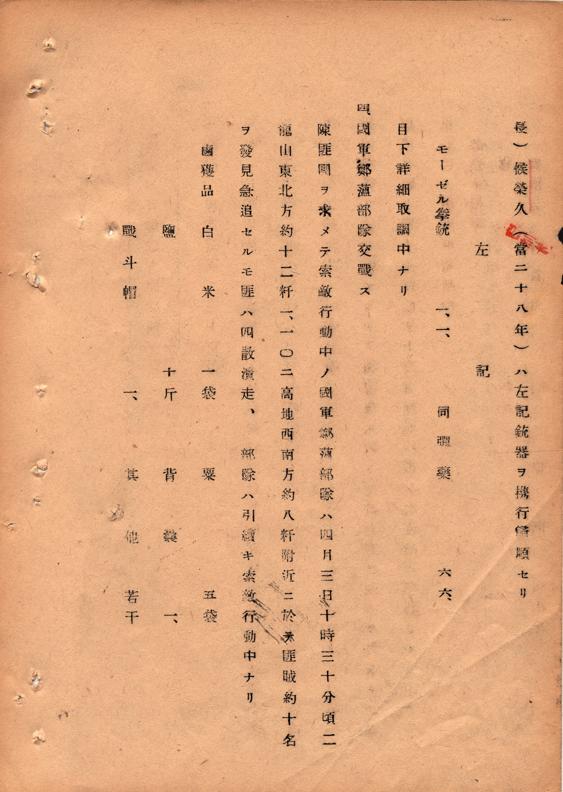 長）候榮久（當二十八年）ハ左記銃器ヲ携行歸順セリ
左記
モーゼル拳銃 一、一、 同彈藥 六六、
目下詳細取調中ナリ
四、國軍鄭蒲部隊交戰ス
陳匪團ヲ求メテ索敵行動中ノ國軍鄭蒲部隊ハ四月三日十時三十分頃二
龍山東北方約十二粁一、一〇二高地西南方約八粁附近ニ於テ匪賊約十名
ヲ發見急追セルモ匪ハ四散潰走、 部隊ハ引續キ索敵行動中ナリ
鹵獲品 白米 一袋 粟 五袋
鹽 十斤 背嚢 一、
戰斗帽 一、 其他 若干